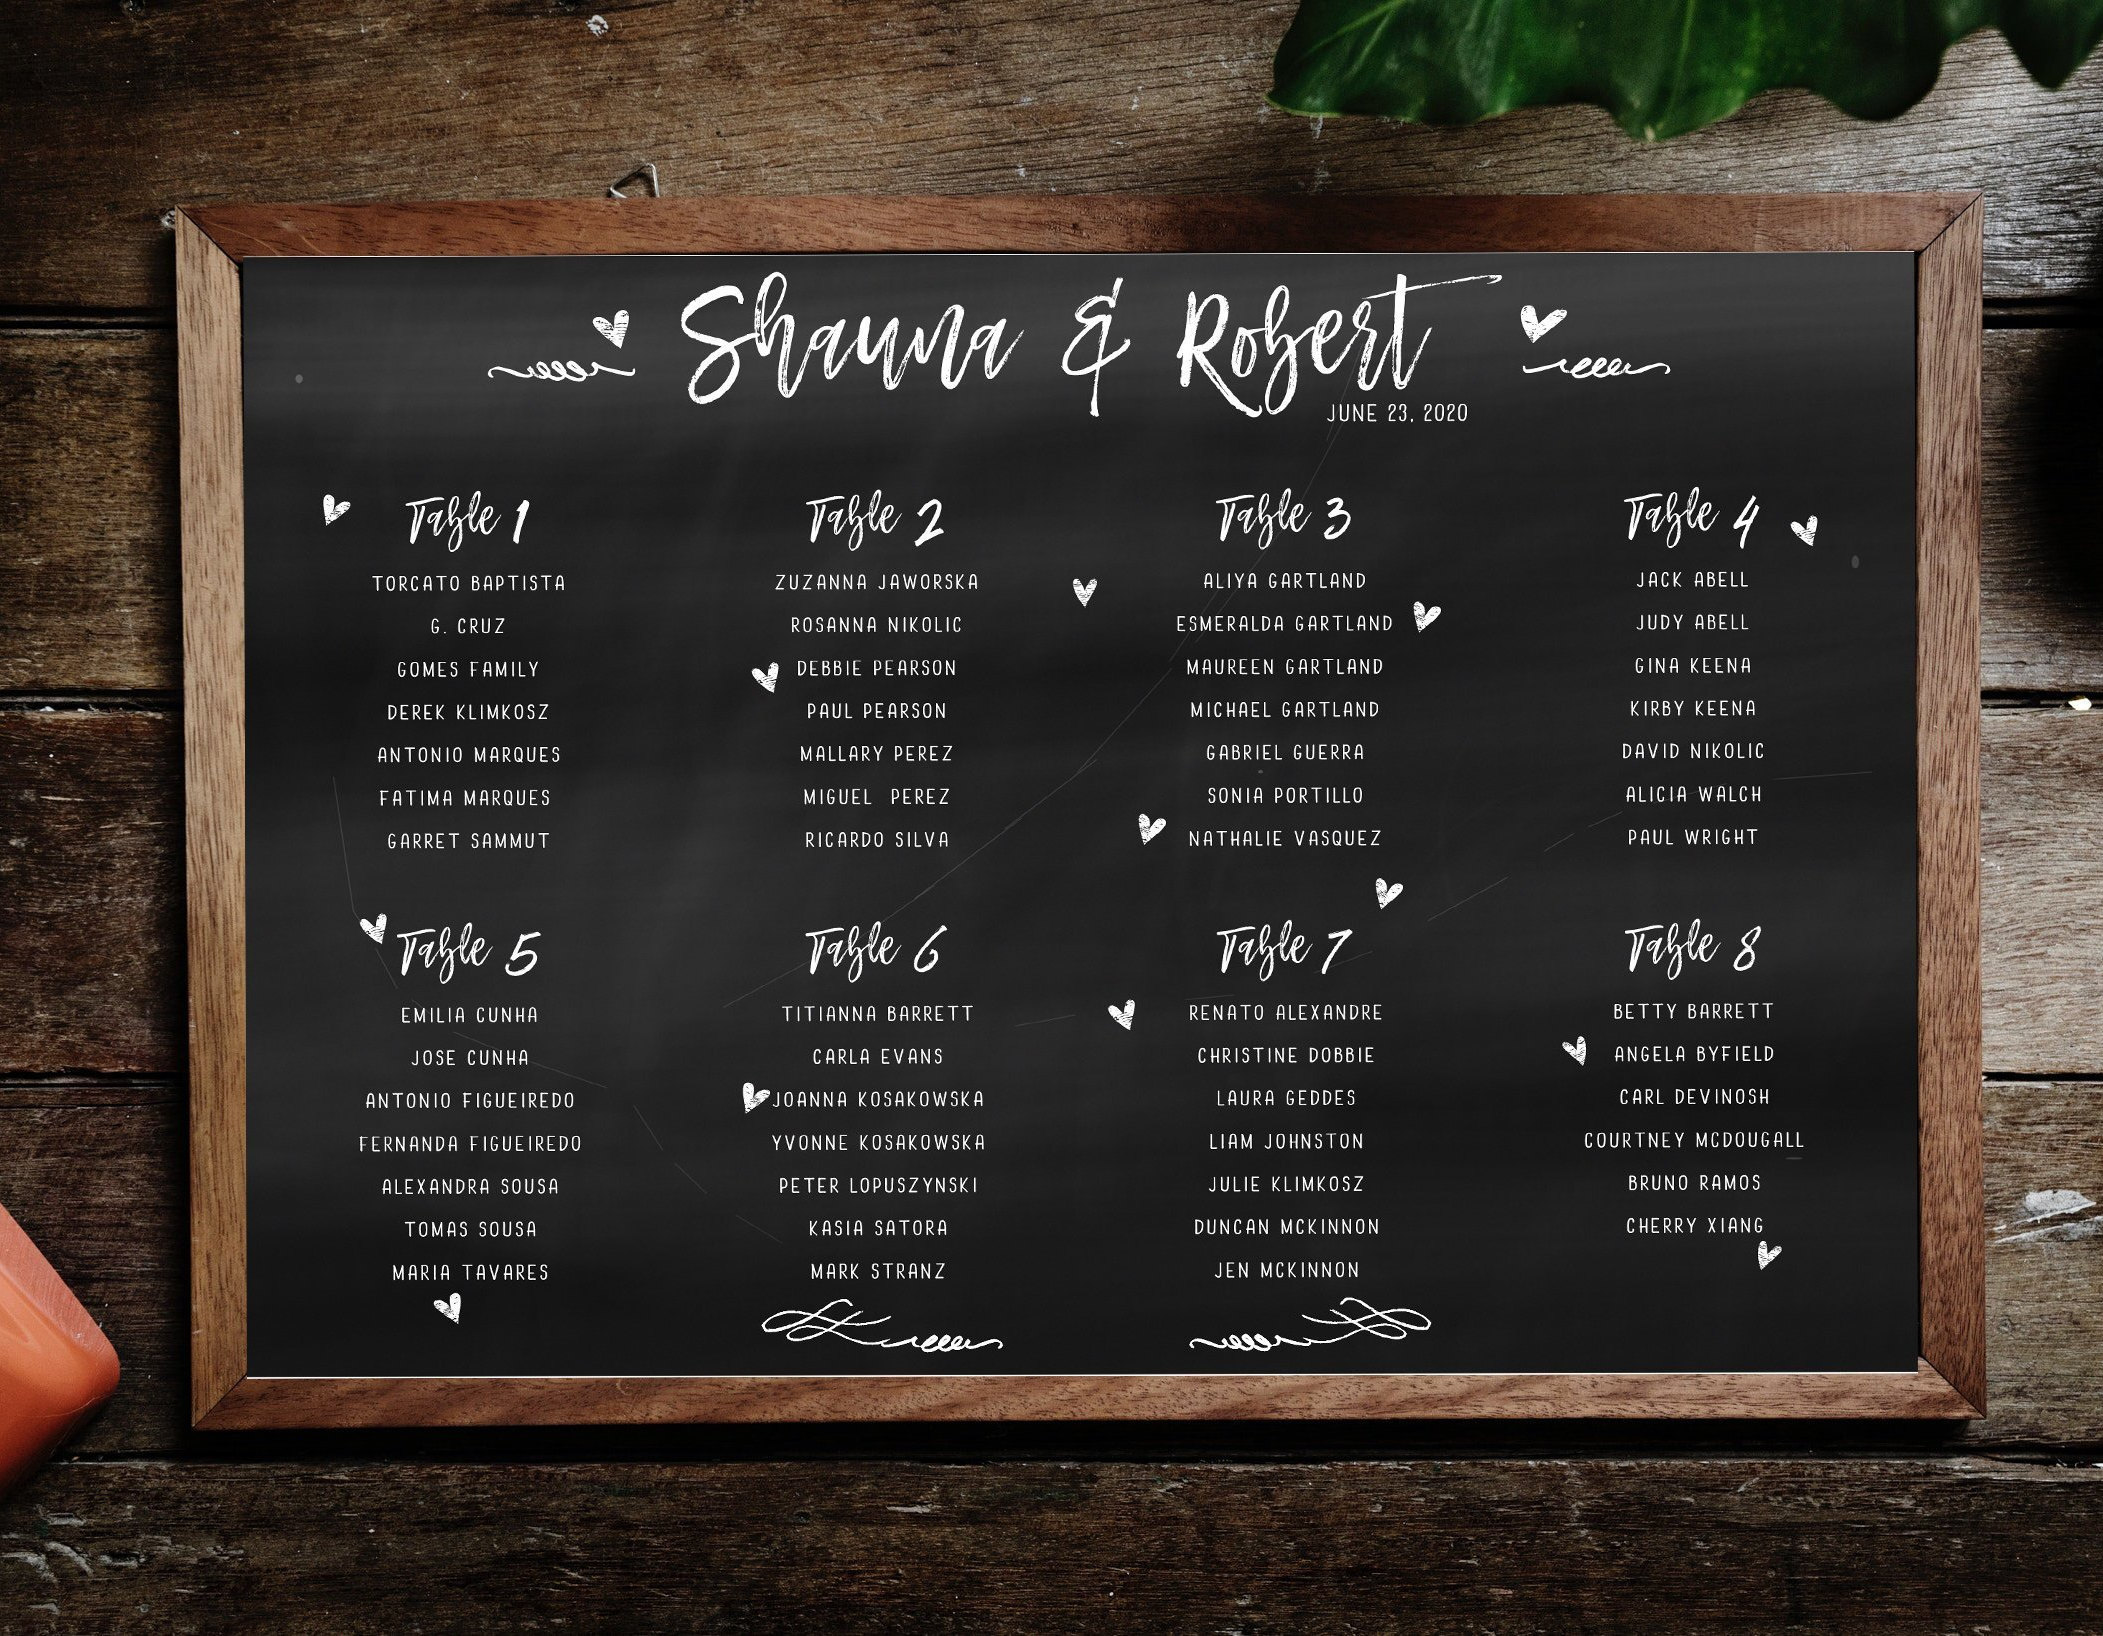 Shauna & Robert
JUNE 23, 2020
Table 1
TORCATO BAPTISTA
G. CRUZ
GOMES FAMILY
DEREK KLIMKOSZ
ANTONIO MARQUES
FATIMA MARQUES
GARRET SAMMUT
Table 2
ZUZANNA JAWORSKA
ROSANNA NIKOLIC
DEBBIE PEARSON
PAUL PEARSON
MALLARY PEREZ
MIGUEL PEREZ
RICARDO SILVA
Table 3
ALIYA GARTLAND
ESMERALDA GARTLAND
MAUREEN GARTLAND
MICHAEL GARTLAND
GABRIEL GUERRA
SONIA PORTILLO
NATHALIE VASQUEZ
Table 4
JACK ABELL
JUDY ABELL
GINA KEENA
KIRBY KEENA
DAVID NIKOLIC
ALICIA WALCH
PAUL WRIGHT
Table 5
EMILIA CUNHA
JOSE CUNHA
ANTONIO FIGUEIREDO
FERNANDA FIGUEIREDO
ALEXANDRA SOUSA
TOMAS SOUSA
MARIA TAVARES
Table 6
TITIANNA BARRETT
CARLA EVANS
JOANNA KOSAKOWSKA
YVONNE KOSAKOWSKA
PETER LOPUSZYNSKI
KASIA SATORA
MARK STRANZ
Table 7
RENATO ALEXANDRE
CHRISTINE DOBBIE
LAURA GEDDES
LIAM JOHNSTON
JULIE KLIMKOSZ
DUNCAN MCKINNON
JEN MCKINNON
Table 8
BETTY BARRETT
ANGELA BYFIELD
CARL DEVINOSH
COURTNEY MCDOUGALL
BRUNO RAMOS
CHERRY XIANG